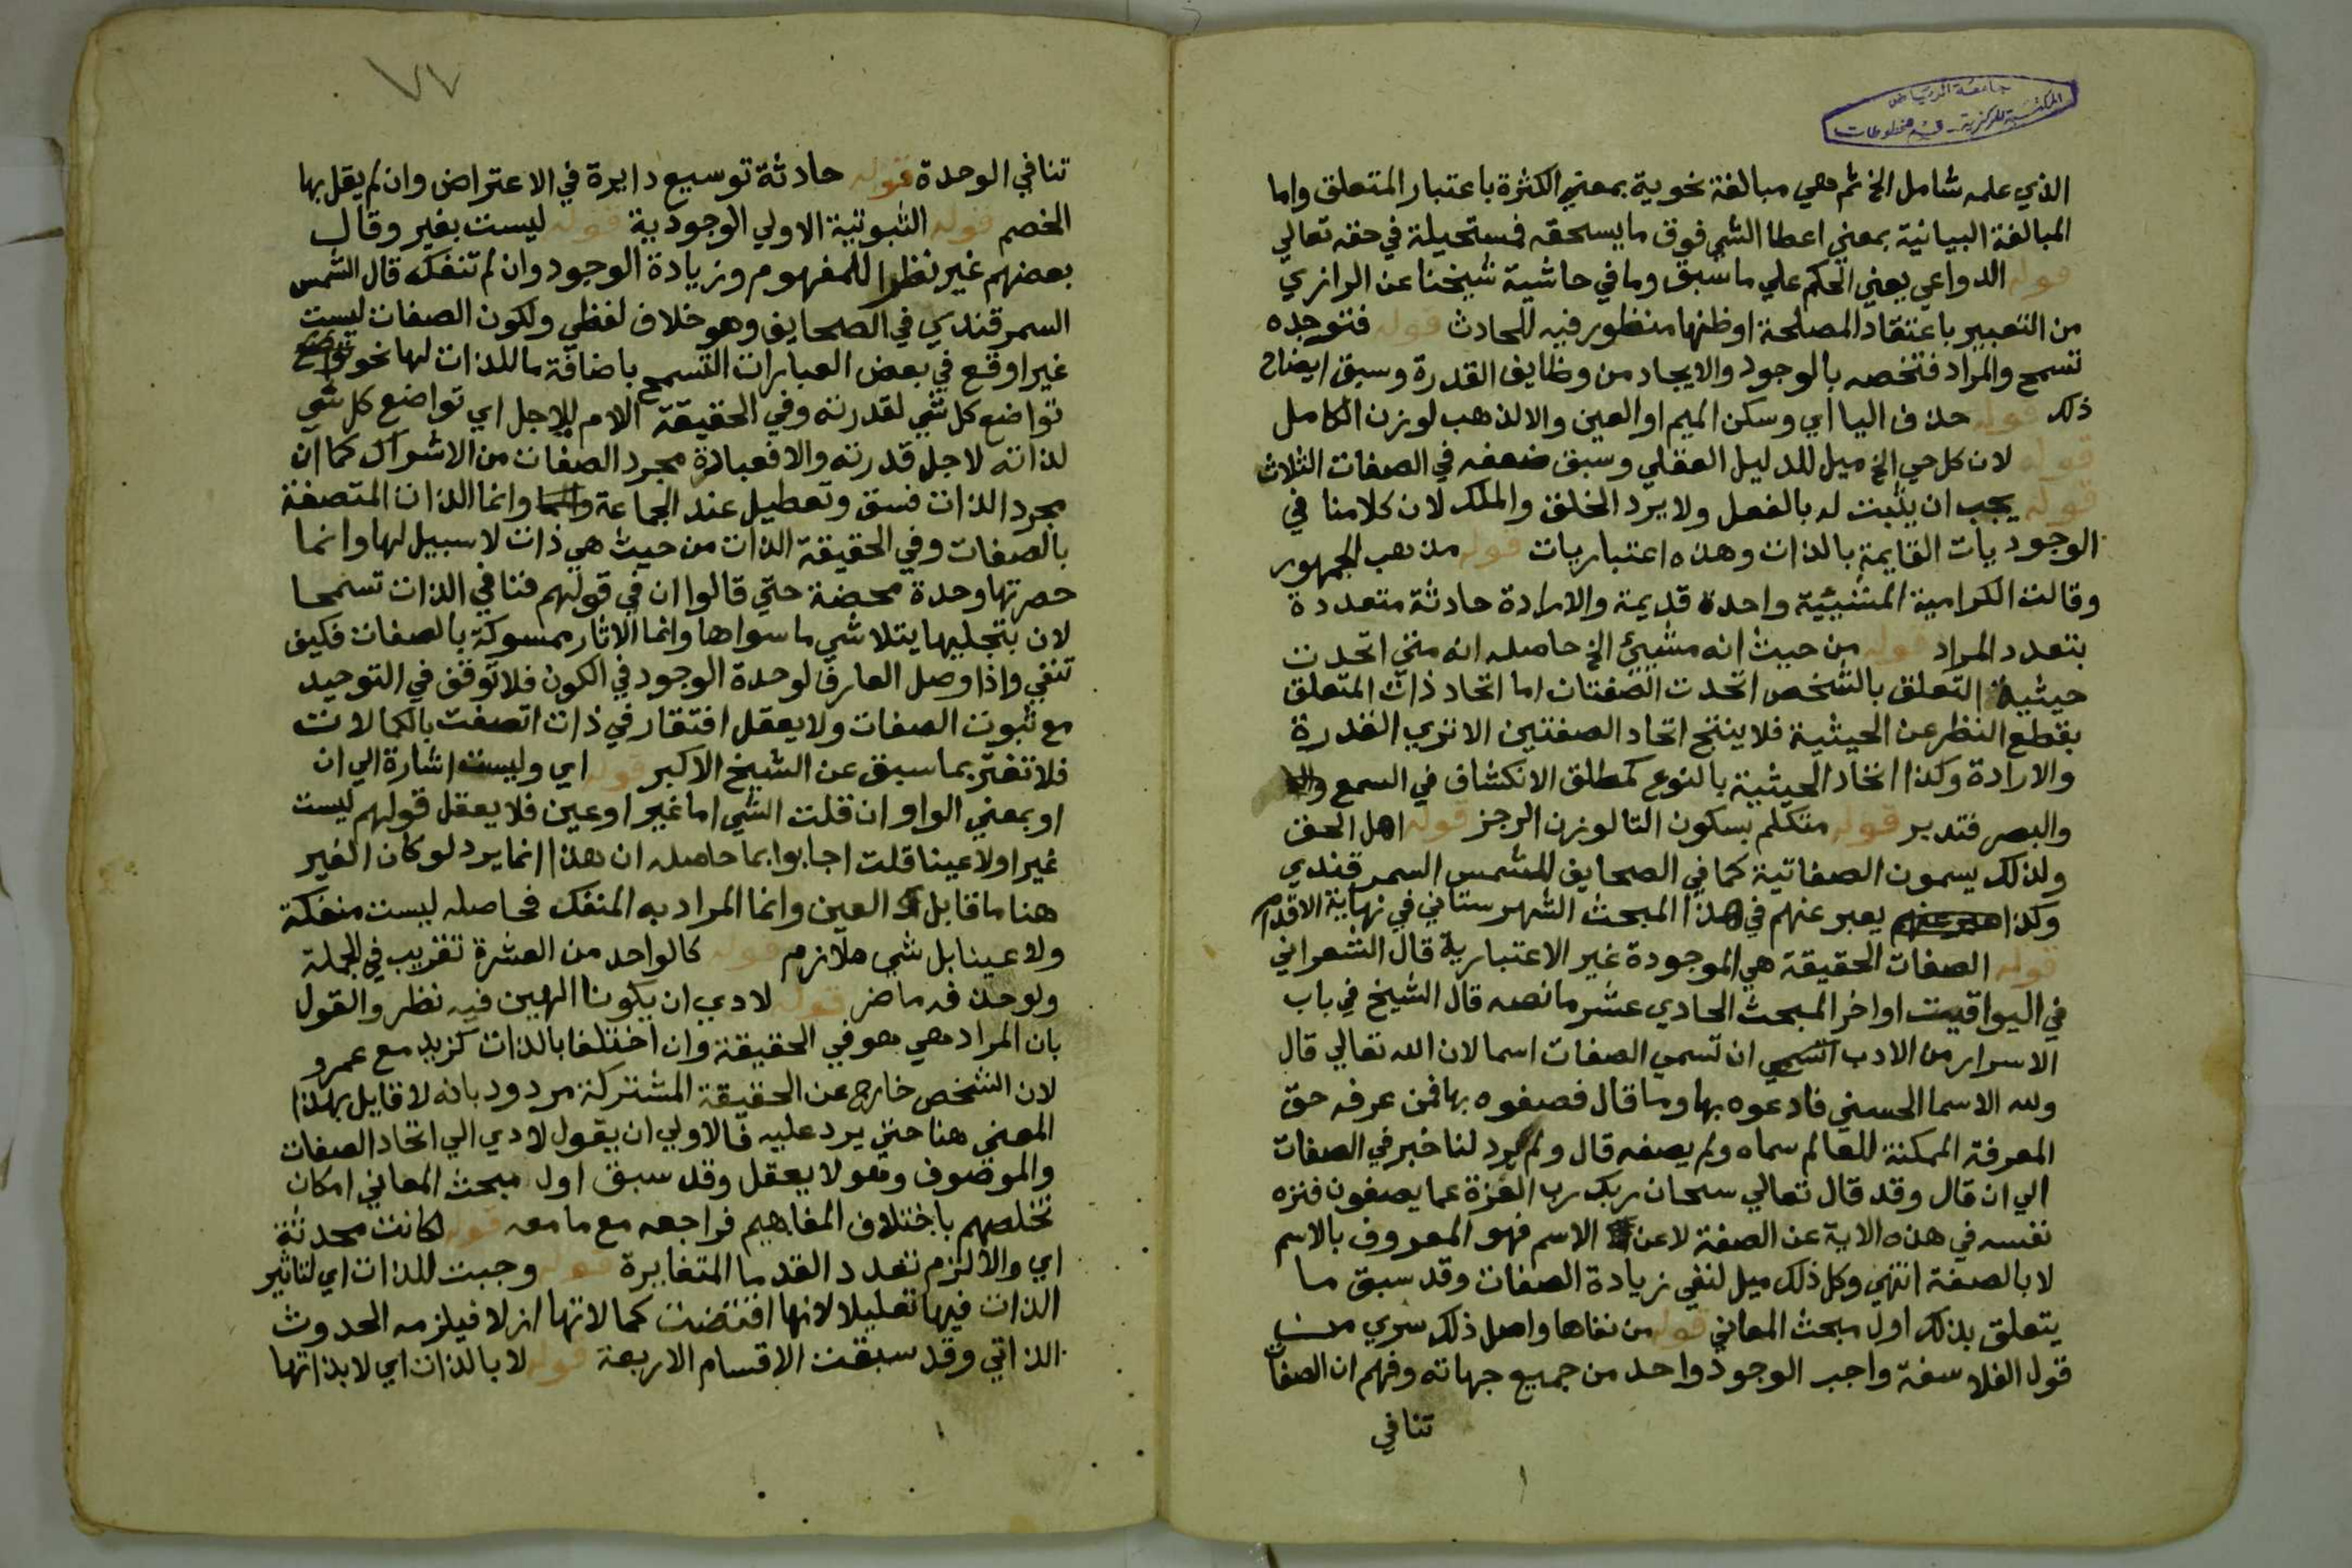 جامعة الرياض
المكتبة المركزية - قسم مخطوطات
الذي علمه شامل الخ ثم هي مبالغة نحوية بمعني الكثرة باعتبار المتعلق واما
المبالغة البيانية بمعني اعطا الشي فوق ما يسحقه فمستحيلة في حقه تعالي
قوله الدواعي يعني الحكم علي ما سبق وما في حاشية شيخنا عن الرازي
من التعبير باعتقاد المصلحة او ظنها منظور فيه للحادث قوله فتوجده
تسمح والمراد فتخصه بالوجود والايجاد من وظايف القدرة وسبق ايضاح
ذلك قوله حذف اليا اي وسكن الميم او العين والا لذهب لوزن الكامل
قوله لان كل حي الخ ميل للدليل العقلي وسبق ضعفه في الصفات الثلاث
قوله يجب ان يثبت له بالفعل ولا يرد الخلق والملك لان كلامنا في
الوجوديات القايمة بالذات وهذه اعتباريات قوله مذهب الجمهور
وقالت الكرامية المشيئية واحدة قديمة والارادة حادثة متعددة
بتعدد المراد قوله من حيث انه مشيئ الخ حاصله انه متي اتحدت
حيثية التعلق بالشخص اتحدت الصفتان اما اتحاد ذات المتعلق
بقطع النظر عن الحيثية فلا ينتج اتحاد الصفتين الا تري القدرة
والارادة وكذا اتحاد الحيثية بالنوع كمطلق الانكشاف في السمع
والبصر فتدبر قوله متكلم بسكون التا لوزن الرجز قوله اهل الحق
ولذلك يسمون الصفاتية كما في الصحايف للشمس السمرقندي
وكذا يعبر عنهم في هذا المبحث الشهرستاني في نهاية الاقدام
قوله الصفات الحقيقة هي الموجودة غير الاعتبارية قال الشعراني
في اليواقيت اواخر المبحث الحادي عشر ما نصه قال الشيخ في باب
الاسرار من الادب ان تسمي الصفات اسما لان الله تعالي قال
ولله الاسما الحسني فادعوه بها وما قال فصفوه بها فمن عرفه حق
المعرفة الممكنة للعالم سماه ولم يصفه قال ولم يرد لنا خبر في الصفات
الي ان قال وقد قال تعالي سبحان ربك رب العزة عما يصفون فنزه
نفسه في هذه الاية عن الصفة لا عن الاسم فهو المعروف بالاسم
لا بالصفة انتهي وكل ذلك ميل لنفي زيادة الصفات وقد سبق ما
يتعلق بذلك اول مبحث المعاني قوله من نفاها واصل ذلك سري من
قول الفلاسفة واجب الوجود واحد من جميع جهاته وفهم ان الصفات
تنافي
٧٧
تنافي الوحدة قوله حادثة توسيع دايرة في الاعتراض وان لم يقل بها
الخصم قوله الثبوتية الاولي الوجودية قوله ليست بغير وقال
بعضهم غير نظرا للمفهوم وزيادة الوجود وان لم تنفك قال الشمس
السمرقندي في الصحايف وهو خلاف لفظي ولكون الصفات ليست
غيرا وقع في بعض العبارات التسمح باضافة ما للذات لها نحو تواضع
تواضع كل شي لقدرته وفي الحقيقة الام للاجل اي تواضع كل شي
لذاته لاجل قدرته والا فعبادة مجرد الصفات من الاشراك كما ان
مجرد الذات فسق وتعطيل عند الجماعة وانما الذات المتصفة
بالصفات وفي الحقيقة الذات من حيث هي ذات لا سبيل لها وانما
حضرتها وحدة محضة حتي قالوا ان في قولهم فنا في الذات تسمحا
لان بتجليها يتلاشي ما سواها وانما الاثار ممسوكة بالصفات فكيف
تنفي واذا وصل العارف لوحدة الوجود في الكون فلا توقف في التوحيد
مع ثبوت الصفات ولا يعقل افتقار في ذات اتصفت بالكمالات
فلا تغتر بما سبق عن الشيخ الاكبر قوله اي وليست اشارة الي ان
او بمعني الواو ان قلت الشي اما غير او عين فلا يعقل قولهم ليست
غيرا ولا عينا قلت اجابوا بما حاصله ان هذا انما يرد لو كان الغير
هنا ما قابل العين وانما المراد به المنفك فحاصله ليست منفكة
ولا عينا بل شي ملازم قوله كالواحد من العشرة تقريب في الجملة
ولو حذفه ما ضر قوله لادي ان يكونا الهين فيه نظر والقول
بان المراد هي هو في الحقيقة وان اختلفا بالذات كزيد مع عمرو
لان الشخص خارج عن الحقيقة المشتركة مردود بانه لا قايل بهذا
المعني هنا حتي يرد عليه فالاولي ان يقول لادي الي اتحاد الصفات
والموصوف وهو لا يعقل وقد سبق اول مبحث المعاني امكان
تخلصهم باختلاف المفاهيم فراجعه مع ما معه قوله لكانت محدثة
اي والا لزم تعدد القدما المتغايرة قوله وجبت للذات اي لتاثير
الذات فيها تعليلا لانها اقتضت كمالاتها ازلا فيلزمه الحدوث
الذاتي وقد سبقت الاقسام الاربعة قوله لا بالذات اي لا بذاتها